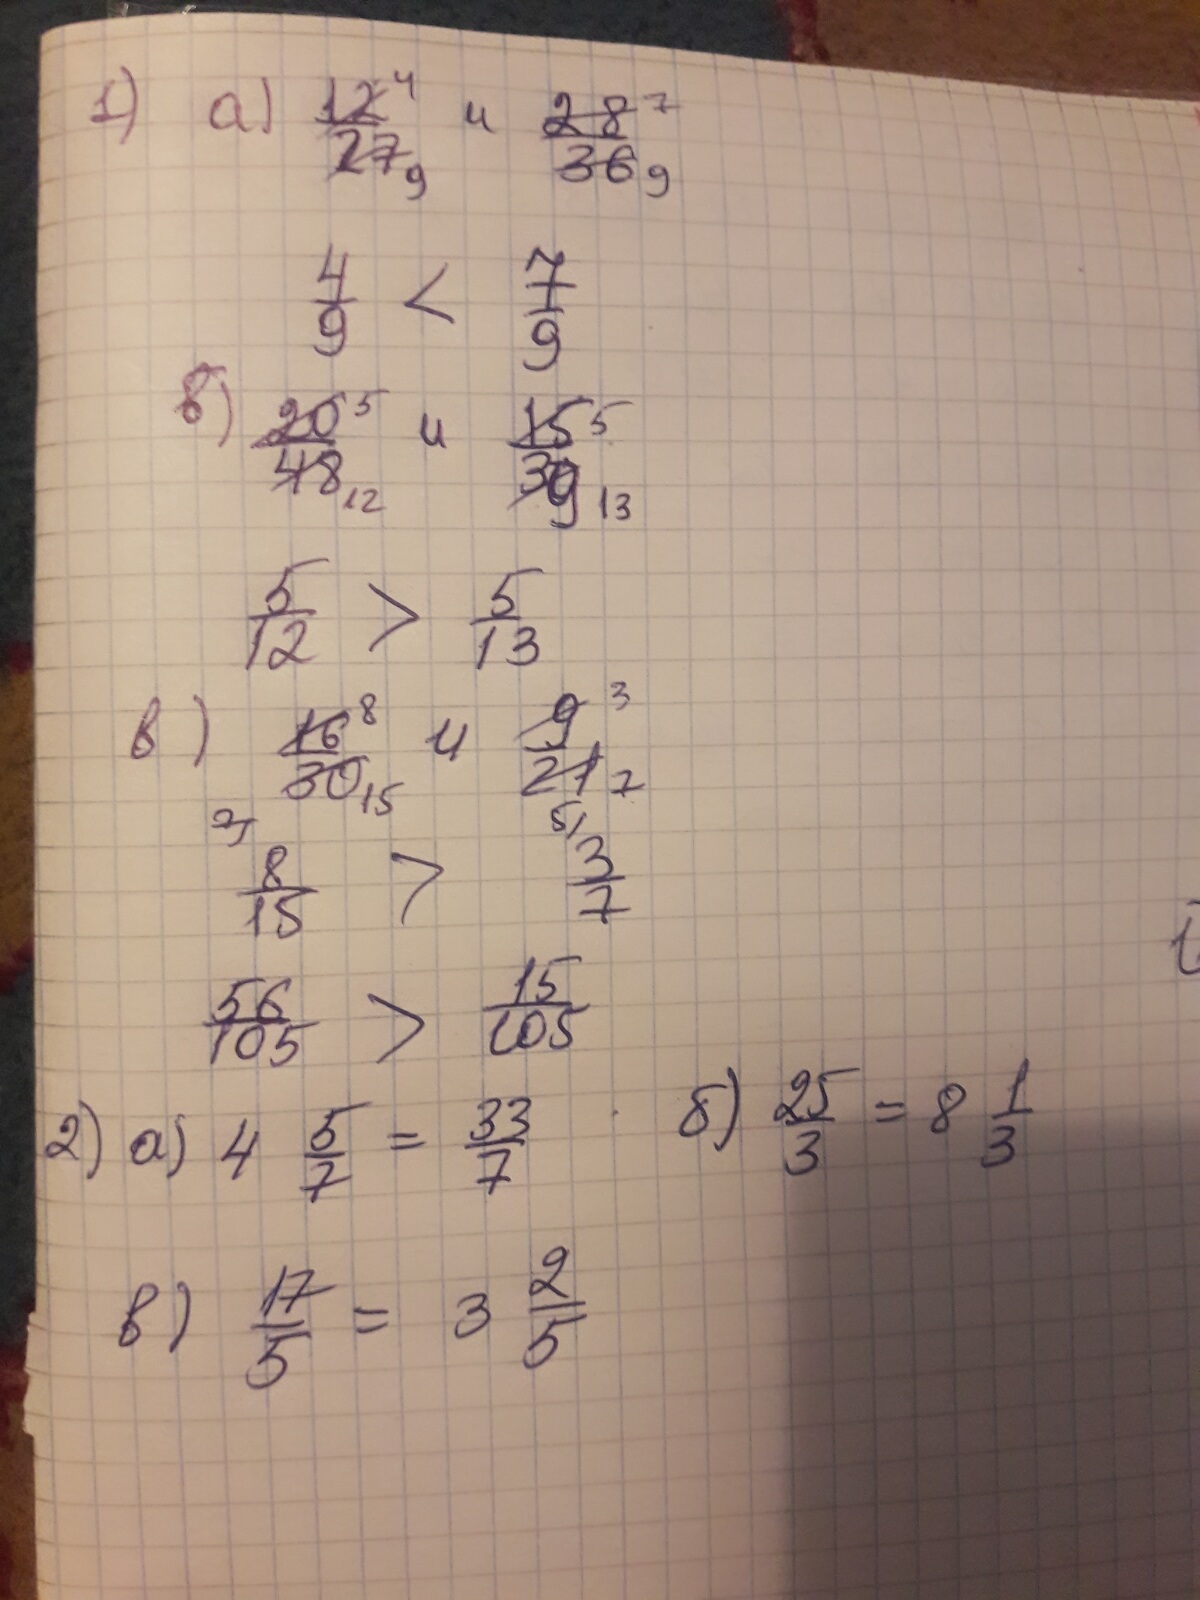 1) а) 12/27 4 9 и 28/36 7 9
4/9 < 7/9
б) 20/48 5 12 и 15/39 5 13
5/12 > 5/13
в) 16/30 8 15 и 9/21 3 7
7) 8/15 > 5) 3/7
56/105 > 15/105
2) а) 4 5/7 = 33/7 б) 25/3 = 8 1/3
в) 17/5 = 3 2/5